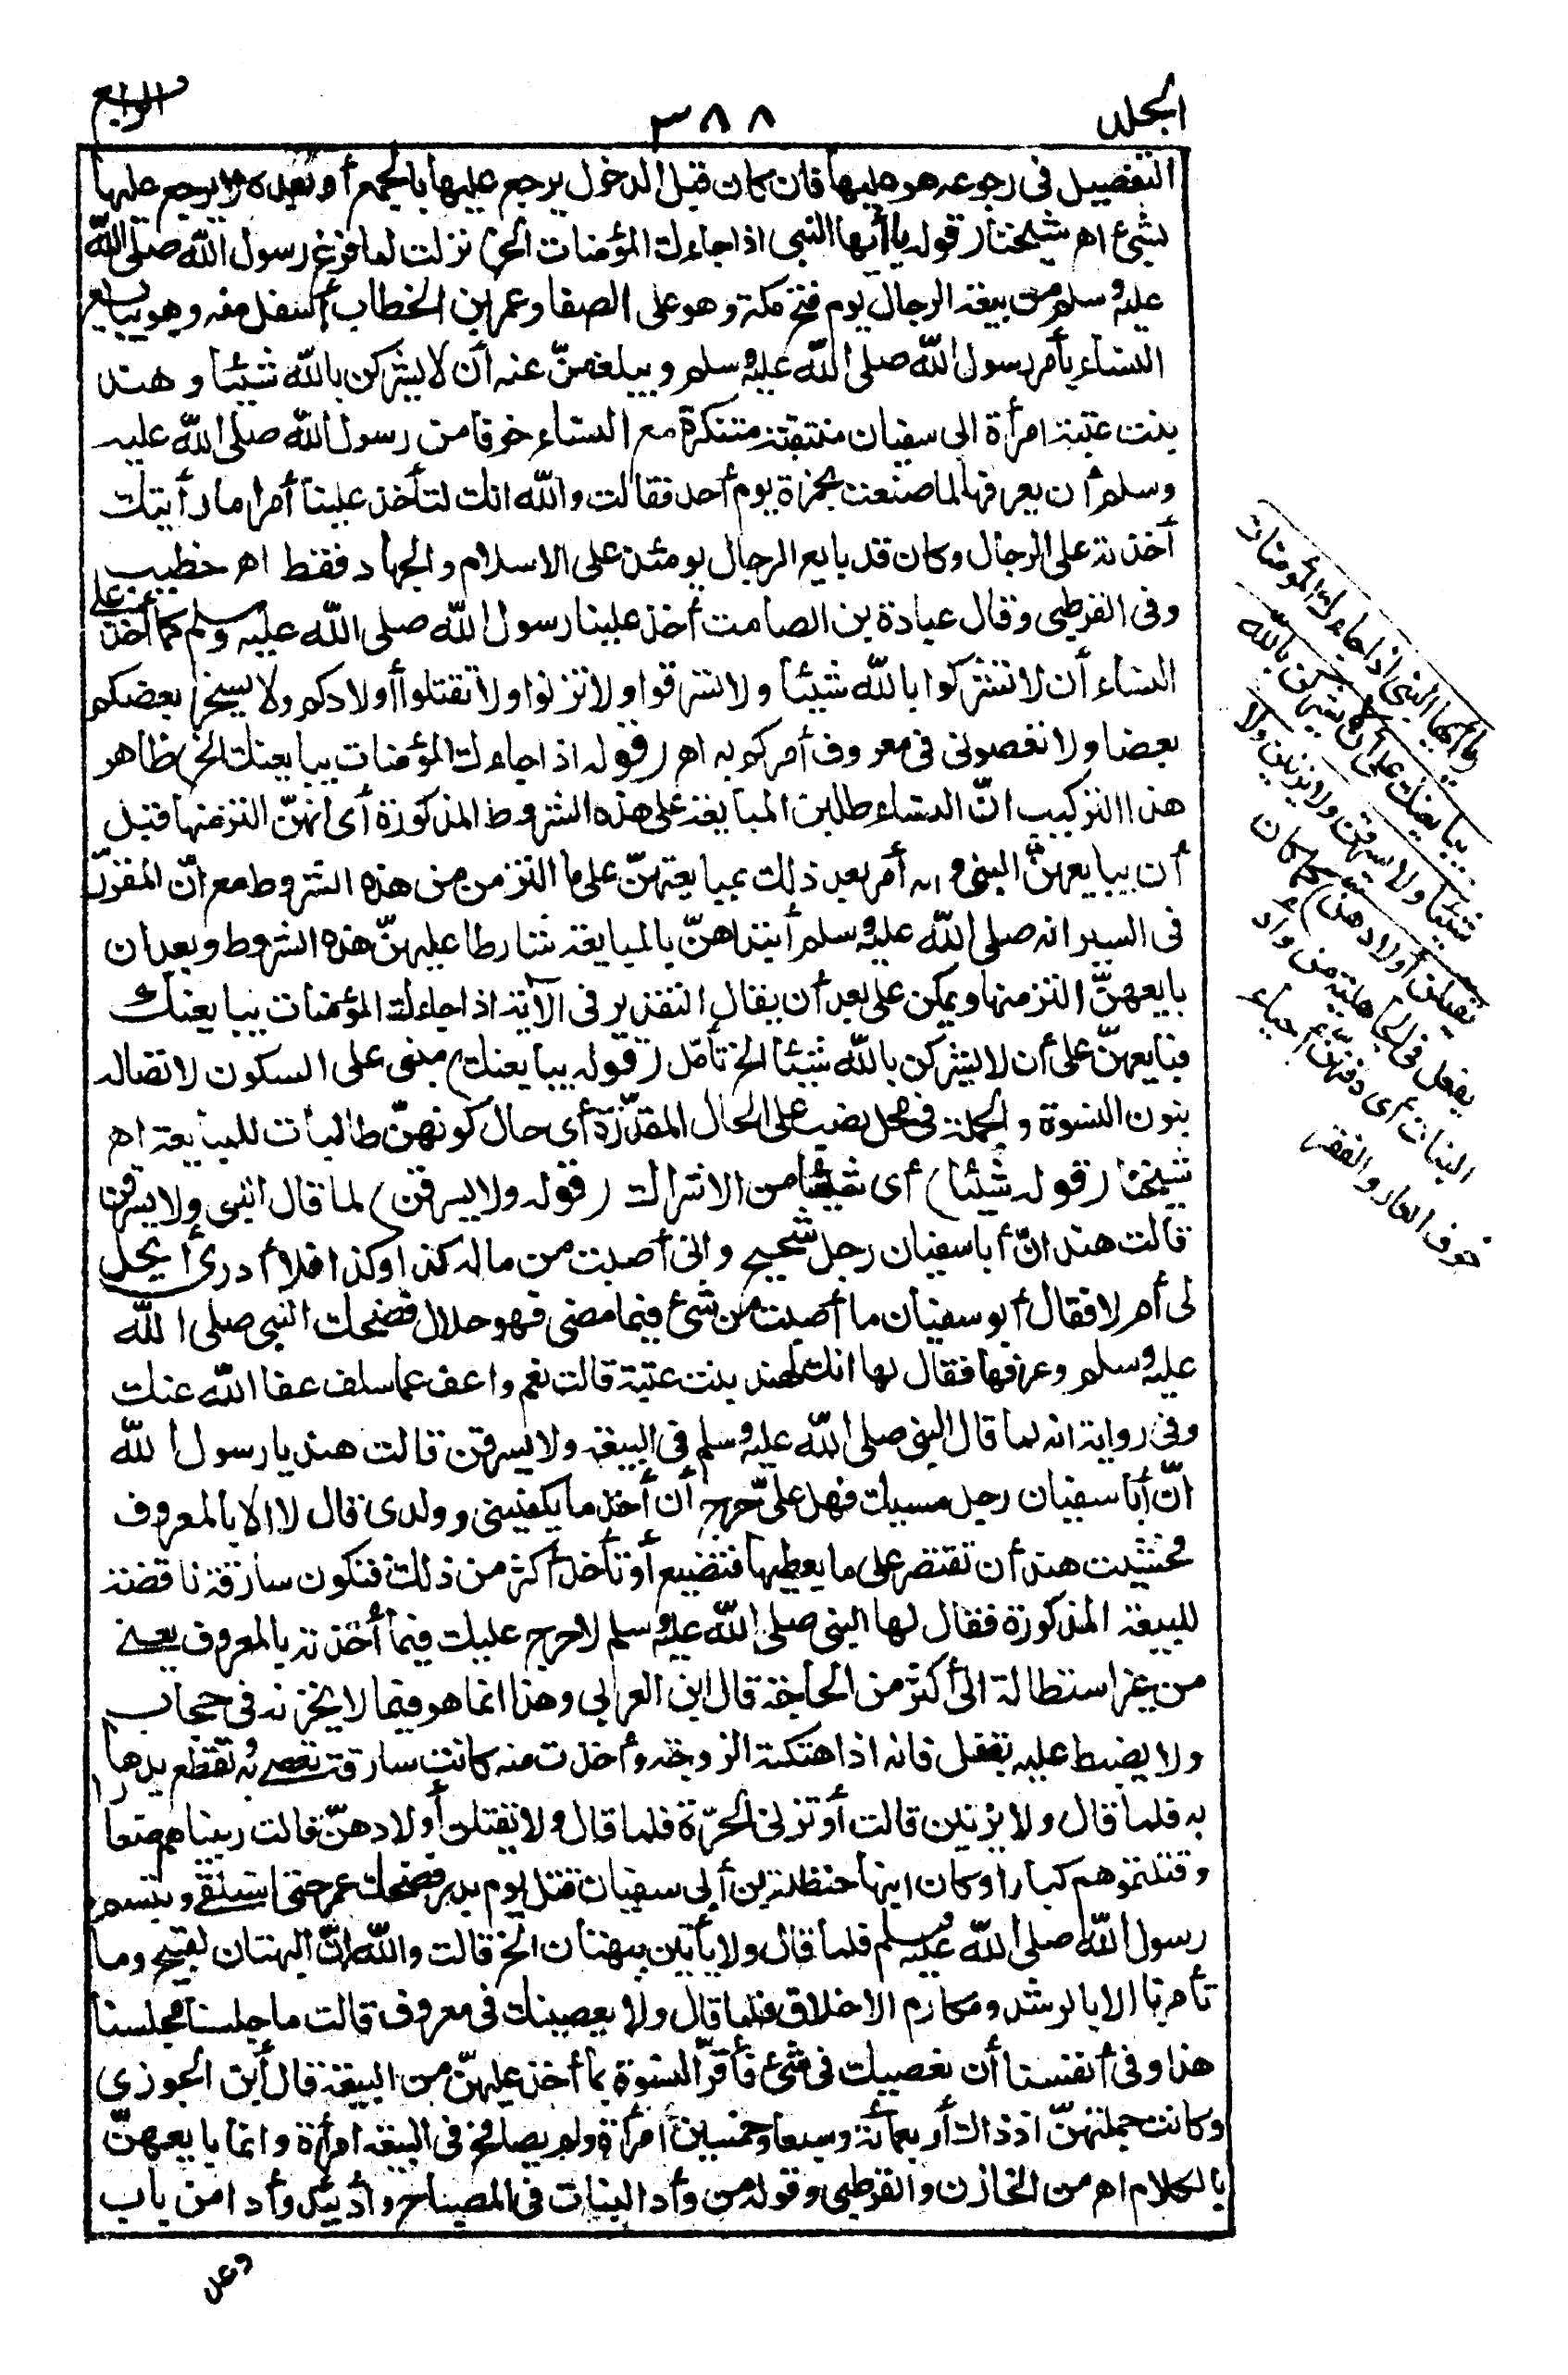 المجلد
٣٨٨
الرابع
التفصيل فى رجوعه هو عليها فان كان قبل الدخول يرجع عليها بالجميع أو بعده لا يرجع عليها
بشئ اه شيخنا (قوله يا أيها النبى اذا جاءك المؤمنات الخ) نزلت لما فرغ رسول الله صلى الله
عليه وسلم من بيعة الرجال يوم فتح مكة وهو على الصفا وعمر بن الخطاب أسفل منه وهو يبايع
النساء بأمر رسول الله صلى الله عليه وسلم ويبلغهنّ عنه أن لا يشركن بالله شيئا وهند
بنت عتبة امرأة ابى سفيان منتقبة متنكرة مع النساء خوفا من رسول الله صلى الله عليه
وسلم أن يعرفها لما صنعت بحمزة يوم أحد فقالت والله انك لتأخذ علينا أمرا ما رأيتك
أخذته على الرجال وكان قد بايع الرجال يومئذ على الاسلام والجهاد فقط اه خطيب
وفى القرطبى وقال عبادة بن الصامت أخذ علينا رسول الله صلى الله عليه وسلم كما أخذ على
النساء أن لا تشركوا بالله شيئا ولا تسرقوا ولا تزنوا ولا تقتلوا أولادكم ولا يسخر بعضكم
بعضا ولا تعصونى فى معروف أمركم به اه (قوله اذا جاءك المؤمنات يبايعنك الخ) ظاهر
هذا التركيب انّ النساء طلبن المبايعة على هذه الشروط المذكورة أى انهنّ التزمنها قبل
أن يبايعهنّ النبى وانه أمر بعد ذلك بمبايعتهنّ على ما التزمن من هذه الشروط مع انّ المقرّر
فى السير انه صلى الله عليه وسلم أبتداهنّ بالمبايعة شارطا عليهنّ هذه الشروط وبعد ان
بايعهنّ التزمنها ويمكن على بعد أن يقال التقدير فى الآية اذا جاءك المؤمنات يبايعنك
فبايعهنّ على أن لا يشركن بالله شيئا الخ تأمّل (قوله يبايعنك) مبنى على السكون لاتصاله
بنون النسوة والجملة فى محل نصب على الحال المقدّرة أى حال كونهنّ طالبات للمبايعة اه
شيخنا (قوله شيئا) أى شيئا من الاشراك (قوله ولا يسرقن) لما قال النبى ولا يسرقن
قالت هند انّ أبا سفيان رجل شحيح وانى أصبت من ماله كذا وكذا فلا أدرى أيحل
لى أم لا فقال أبو سفيان ما أصبت من شئ فيما مضى فهو حلال فضحك النبى صلى الله
عليه وسلم وعرفها فقال لها انك لهند بنت عتبة قالت نعم واعف عما سلف عفا الله عنك
وفى رواية انه لما قال النبى صلى الله عليه وسلم فى البيعة ولا يسرقن قالت هند يا رسول الله
انّ أبا سفيان رجل مسيك فهل علىّ حرج أن أخذ ما يكفينى وولدى قال لا الا بالمعروف
فخشيت هند أن تقتصر على ما يعطيها فتضيع أو تأخذ أكثر من ذلك فتكون سارقة ناقضة
للبيعة المذكورة فقال لها النبى صلى الله عليه وسلم لا حرج عليك فيما أخذته بالمعروف يعنى
من غير استطالة الى أكثر من الحاجة قال ابن العرابى وهذا انما هو فيما لا يخزنه فى حجاب
ولا يضبط عليه بقفل فانه اذا هتكته الزوجة وأخذت منه كانت سارقة تعصى به وتقطع يدها
به فلما قال ولا يزنين قالت أو تزنى الحرّة فلما قال ولا يقتلن أولادهنّ قالت ربيناهم صغارا
وقتلتموهم كبارا وكان ابنها حنظلة بن أبى سفيان قتل يوم بدر فضحك عمر حتى استلقى وتبسم
رسول الله صلى الله عليه وسلم فلما قال ولا يأتين ببهتان الخ قالت والله انّ البهتان لقبيح وما
تأمرنا الا بالرشد ومكارم الاخلاق فلما قال ولا يعصينك فى معروف قالت ما جلسنا مجلسنا
هذا وفى أنفسنا أن نعصيك فى شئ فأقرّ النسوة بما أخذ عليهنّ من البيعة قال أبن الجوزى
وكانت جملتهنّ اذ ذاك أربعمائة وسبعا وخمسين امرأة ولم يصافح فى البيعة امرأة وانما بايعهنّ
بالكلام اه من الخازن والقرطبى وقوله من وأد البنات فى المصباح وأد بيئد وأدا من باب
وعد
يا أيها النبى اذا جاءك المؤمنات
يبايعنك على أن لا يشركن بالله
شيئا ولا يسرقن ولا يزنين ولا
يقتلن أولادهن) كما كان
يفعل فى الجاهلية من وأد
البنات أى دفنهنّ أحياء
خوف العار والفقر